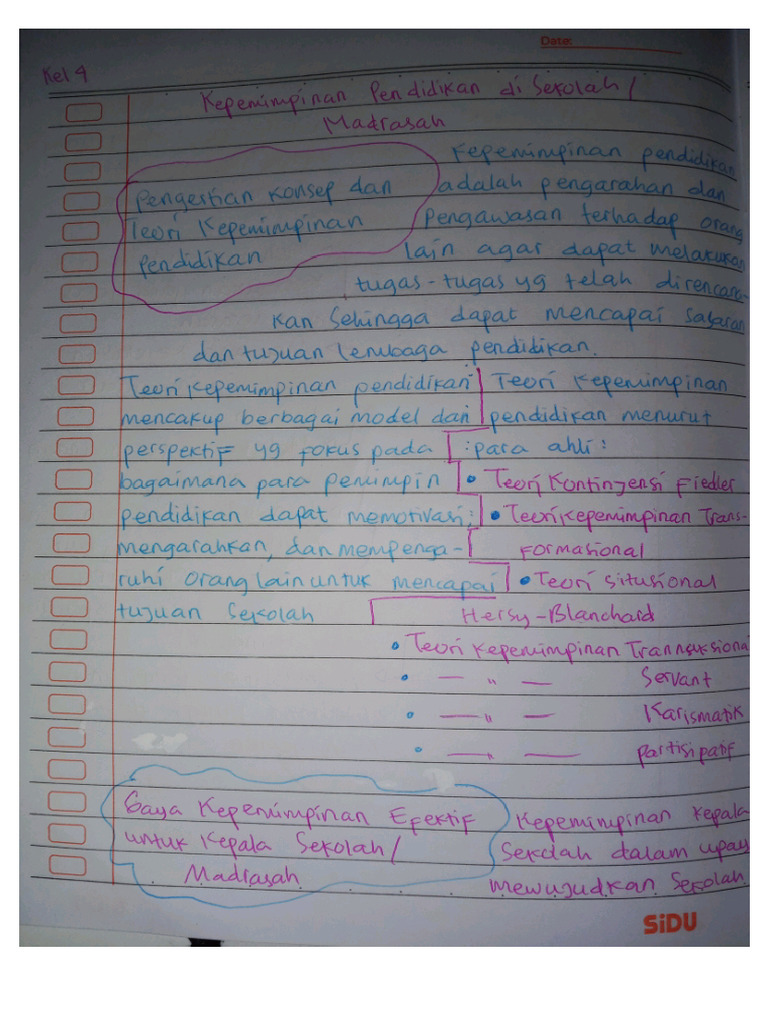 Date:
Kel 4
Kepemimpinan Pendidikan di Sekolah /
Madrasah
Pengertian konsep dan
Teori Kepemimpinan
pendidikan
Kepemimpinan pendidikan
adalah pengarahan dan
pengawasan terhadap orang
lain agar dapat melakukan
tugas-tugas yg telah direnca-
kan sehingga dapat mencapai sasaran
dan tujuan lembaga pendidikan.
Teori kepemimpinan pendidikan
mencakup berbagai model dan
perspektif yg fokus pada
bagaimana para pemimpin
pendidikan dapat memotivasi;
mengarahkan, dan mempenga-
ruhi orang lain untuk mencapai
tujuan sekolah
Teori Kepemimpinan
pendidikan menurut
:para ahli:
• Teori Kontingensi Fiedler
• Teori kepemimpinan Trans-
formasional
• Teori situsional
Hersy-Blanchard
• Teori kepemimpinan
• — " — Servant
• — " — Karismatik
• — " — partisipatif
Gaya Kepemimpinan Efektif
untuk Kepala Sekolah /
Madrasah
Kepemimpinan kepala
Sekolah dalam upay
mewujudkan sekolah
SiDU